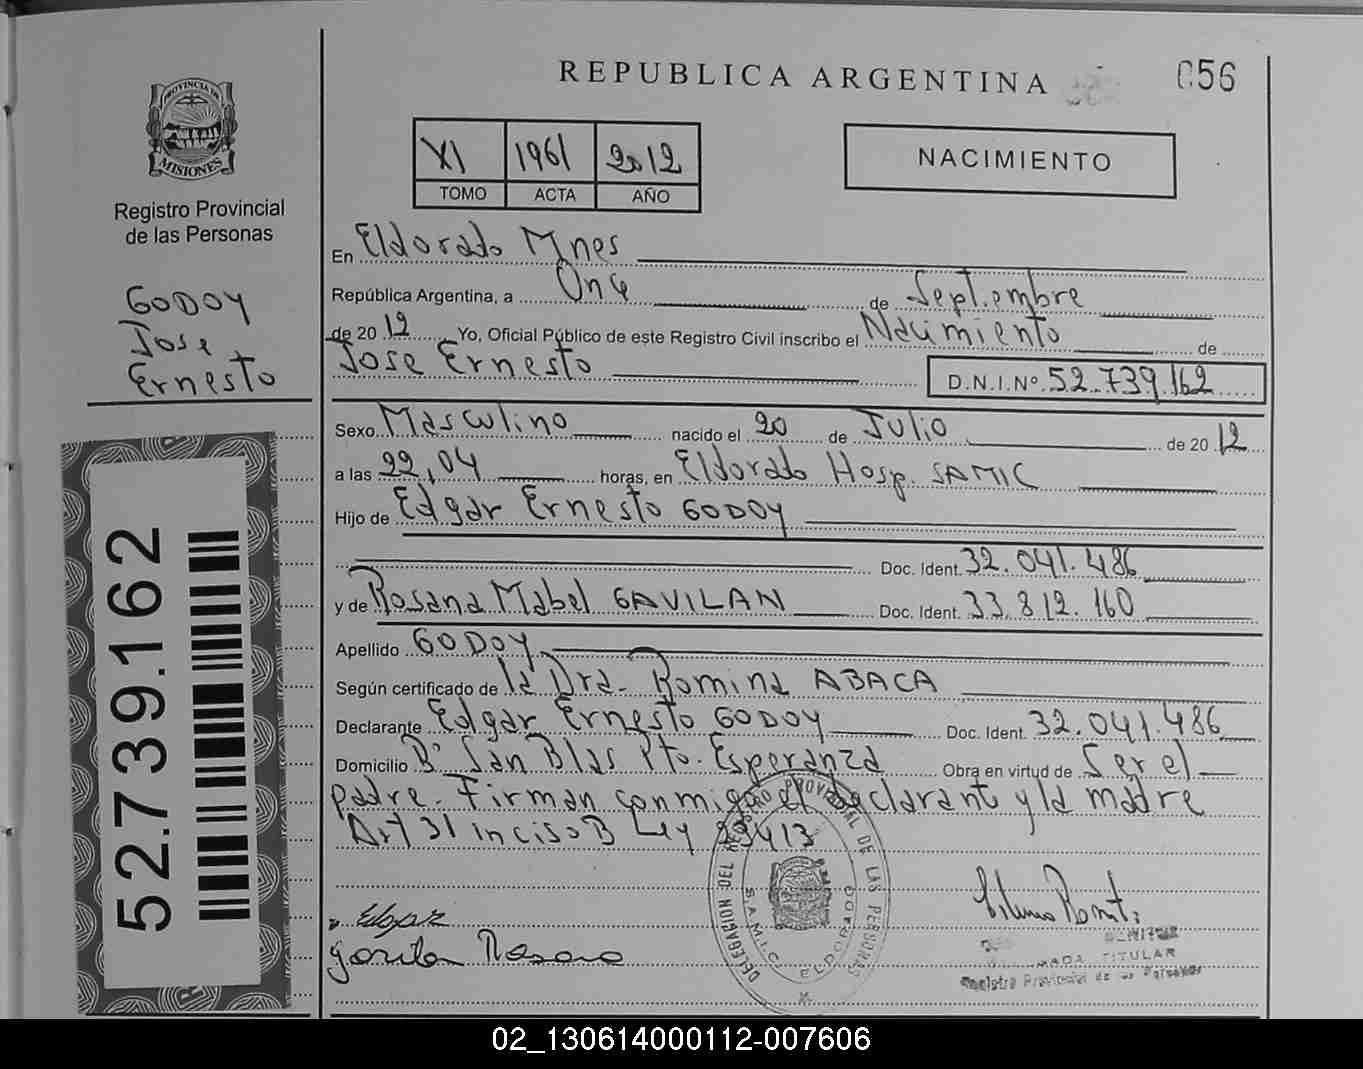 REPUBLICA ARGENTINA
056
PROVINCIA DE
MISIONES
Registro Provincial
de las Personas
GODOY
Jose
Ernesto
XI 1961 2012
TOMO ACTA AÑO
NACIMIENTO
En Eldorado Mnes
República Argentina, a Once de Septiembre
de 2012 Yo, Oficial Público de este Registro Civil inscribo el Nacimiento de
Jose Ernesto D.N.I.Nº 52.739.162
Sexo Masculino nacido el 20 de Julio de 2012
a las 22,04 horas, en Eldorado Hosp. SAMIC
Hijo de Edgar Ernesto GODOY
Doc. Ident. 32.041.486
y de Rosana Mabel GAVILAN Doc. Ident. 33.812.160
Apellido GODOY
Según certificado de la Dra. Romina ABACA
Declarante Edgar Ernesto GODOY Doc. Ident. 32.041.486
Domicilio Bº San Blas Pto. Esperanza Obra en virtud de Ser el
padre. Firman conmigo el Declarante y la madre
Art 31 inciso B Ley 23413
52.739.162
DELEGACION DEL REGISTRO PROVINCIAL DE LAS PERSONAS
S.A.M.I.C. ELDORADO
Edgar
Gavilan Rosana
TITULAR
Registro Provincial de las Personas
02_130614000112-007606